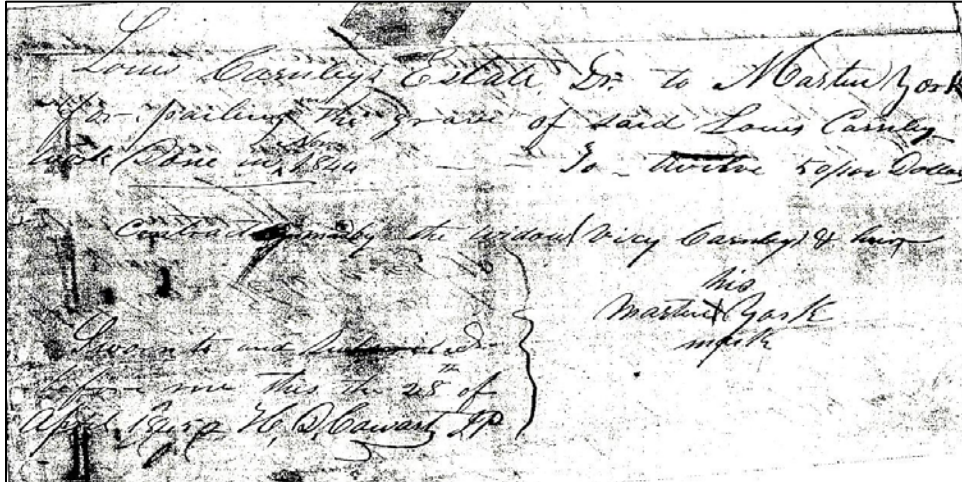 Louis Carnley's Estate, Dr. to Martin York
for pailing the grave of said Louis Carnley
work Done in Nov 1844 - - To - twelve 50/100 Dollars
Contract made by the widow (Vicy Carnley) &
his
Martin X York
mark
Sworn to and Subscribed
before me this the 28th of
April H. D. Cawart JP